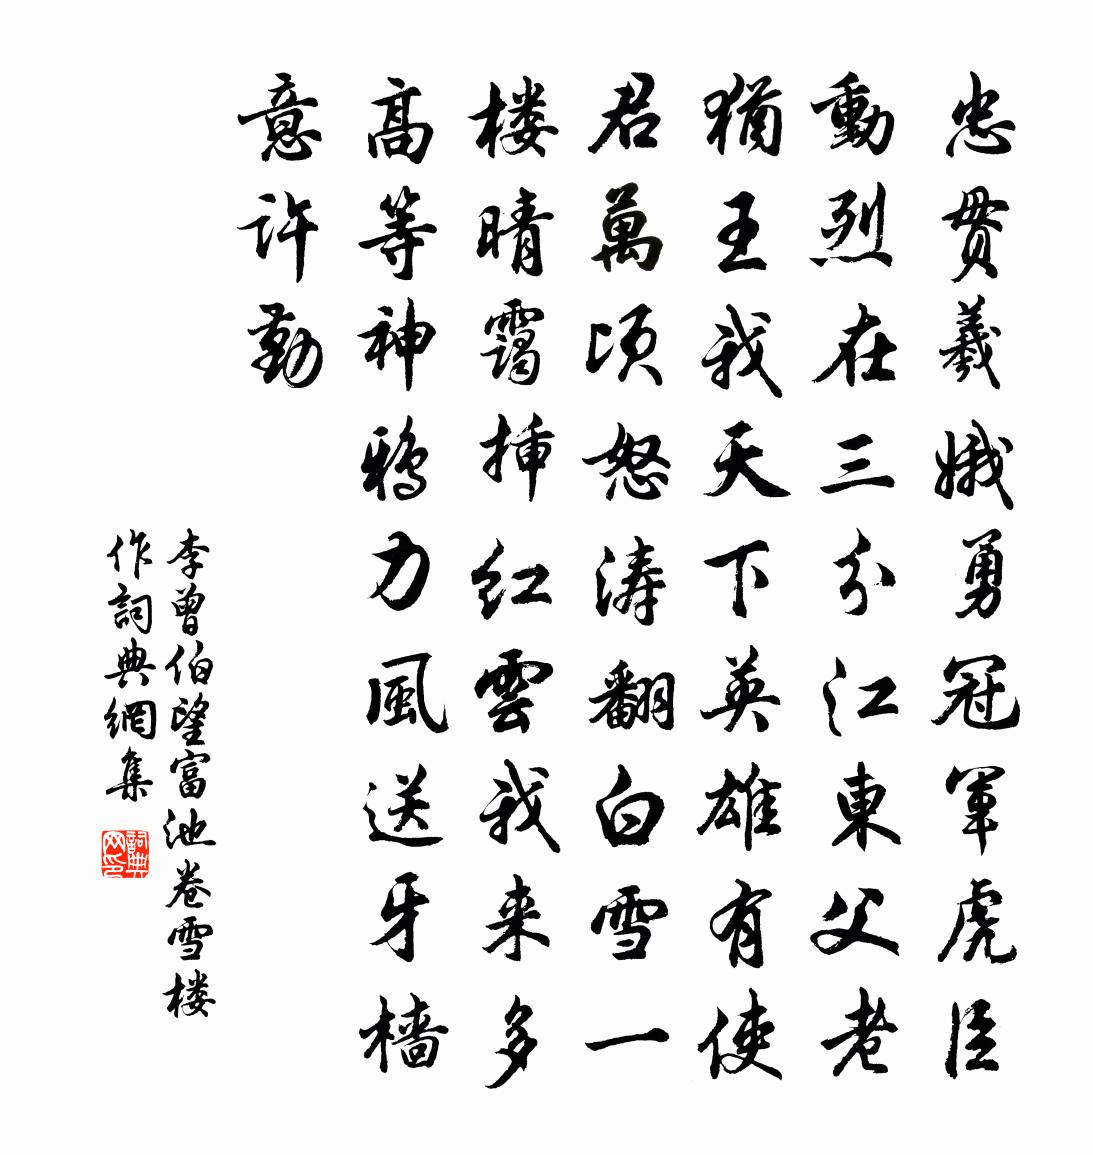 忠贯羲娥勇冠军虎臣
動烈在三分江東父老
猶王我天下英雄有使
君萬顷怒涛翻白雪一
楼晴靄挿红雲我来多
髙等神鴉力風送牙檣
意许勤
李曾伯望富池卷雪楼
作詞典網集
詞典网印